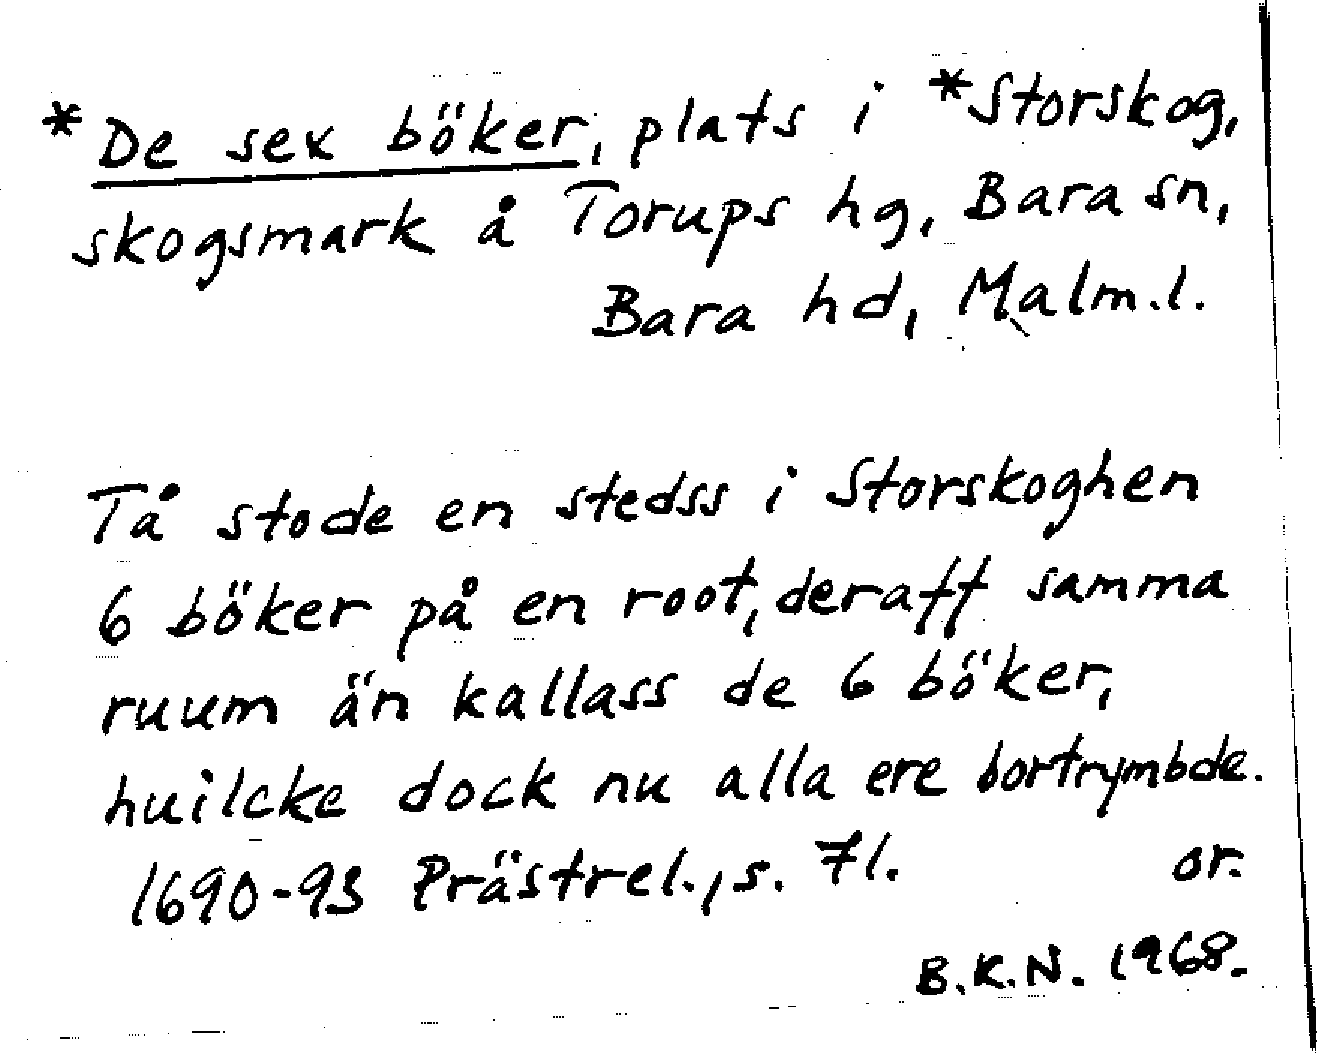 *De sex böker, plats i *Storskog,
skogsmark å Torups hg, Bara sn,
Bara hd, Malm.l.
Tå stode en stedss i Storskoghen
6 böker på en root, deraff samma
ruum än kallass de 6 böker,
huilcke dock nu alla ere bortrymbde.
1690-93 Prästrel., s. 71. or.
B.K.N. 1968.